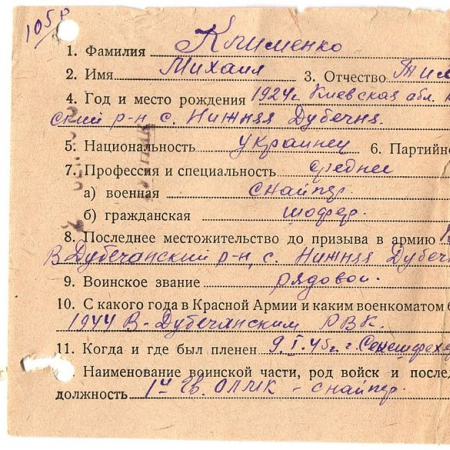 105
1. Фамилия Клименко
2. Имя Михаил 3. Отчество Тим
4. Год и место рождения 1924г. Киевская обл.
ский р-н с. Нижняя Дубечня.
5. Национальность украинец 6. Партийно
7. Профессия и специальность среднее
а) военная снайпер.
б) гражданская шофер.
8. Последнее местожительство до призыва в армию
В Дубечанский р-н, с. Нижняя Дубеч
9. Воинское звание рядовой.
10. С какого года в Красной Армии и каким военкоматом
1944 В-Дубечанским РВК.
11. Когда и где был пленен 9.I.45г. г.
Наименование воинской части, род войск и послед
должность 1я Гв. - снайпер.